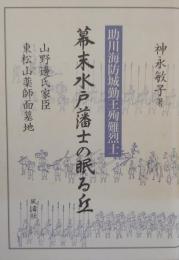 神永敏子著
助川海防城勤王殉難烈士
幕末水戸藩士の眠る丘
山野邊氏家臣
東松山薬師面墓地
風濤社